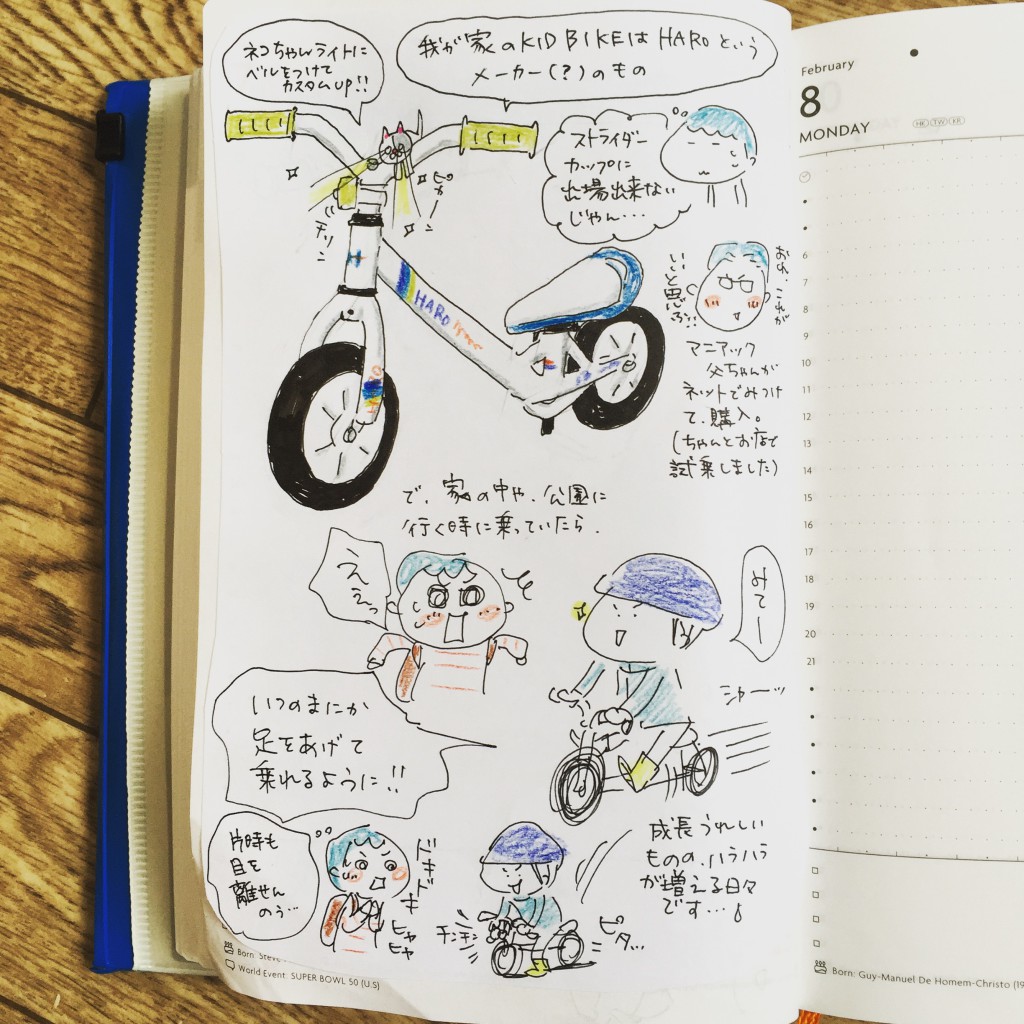 ネコちゃんライトに
ベルをつけて
カスタムUP!!
我が家のKID BIKEは HAROという
メーカー(?)のもの
ストライダー
カップに
出場出来ない
じゃん・・・
ピカーン
チリン
おれ、これが
いいと思う!!
H
HARO
マニアック
父ちゃんが
ネットでみつけ
て、購入。
(ちゃんとお店で
試乗しました)
で、家の中や、公園に
行く時に乗っていたら、
えぇっ
みてー
シャーッ
いつのまにか
足をあげて
乗れるように!!
片時も
目を
離せん
のぅ…
ドキドキ
ヒヤヒヤ
チンチン
ピタッ…
成長うれしい
ものの、ハラハラ
が増える日々
です…♪
Born: Steve
World Event: SUPER BOWL 50 (U.S)
February
8
MONDAY
HK TW KR
6
7
8
9
10
11
12
13
14
15
16
17
18
19
20
21
Born: Guy-Manuel De Homem-Christo (19